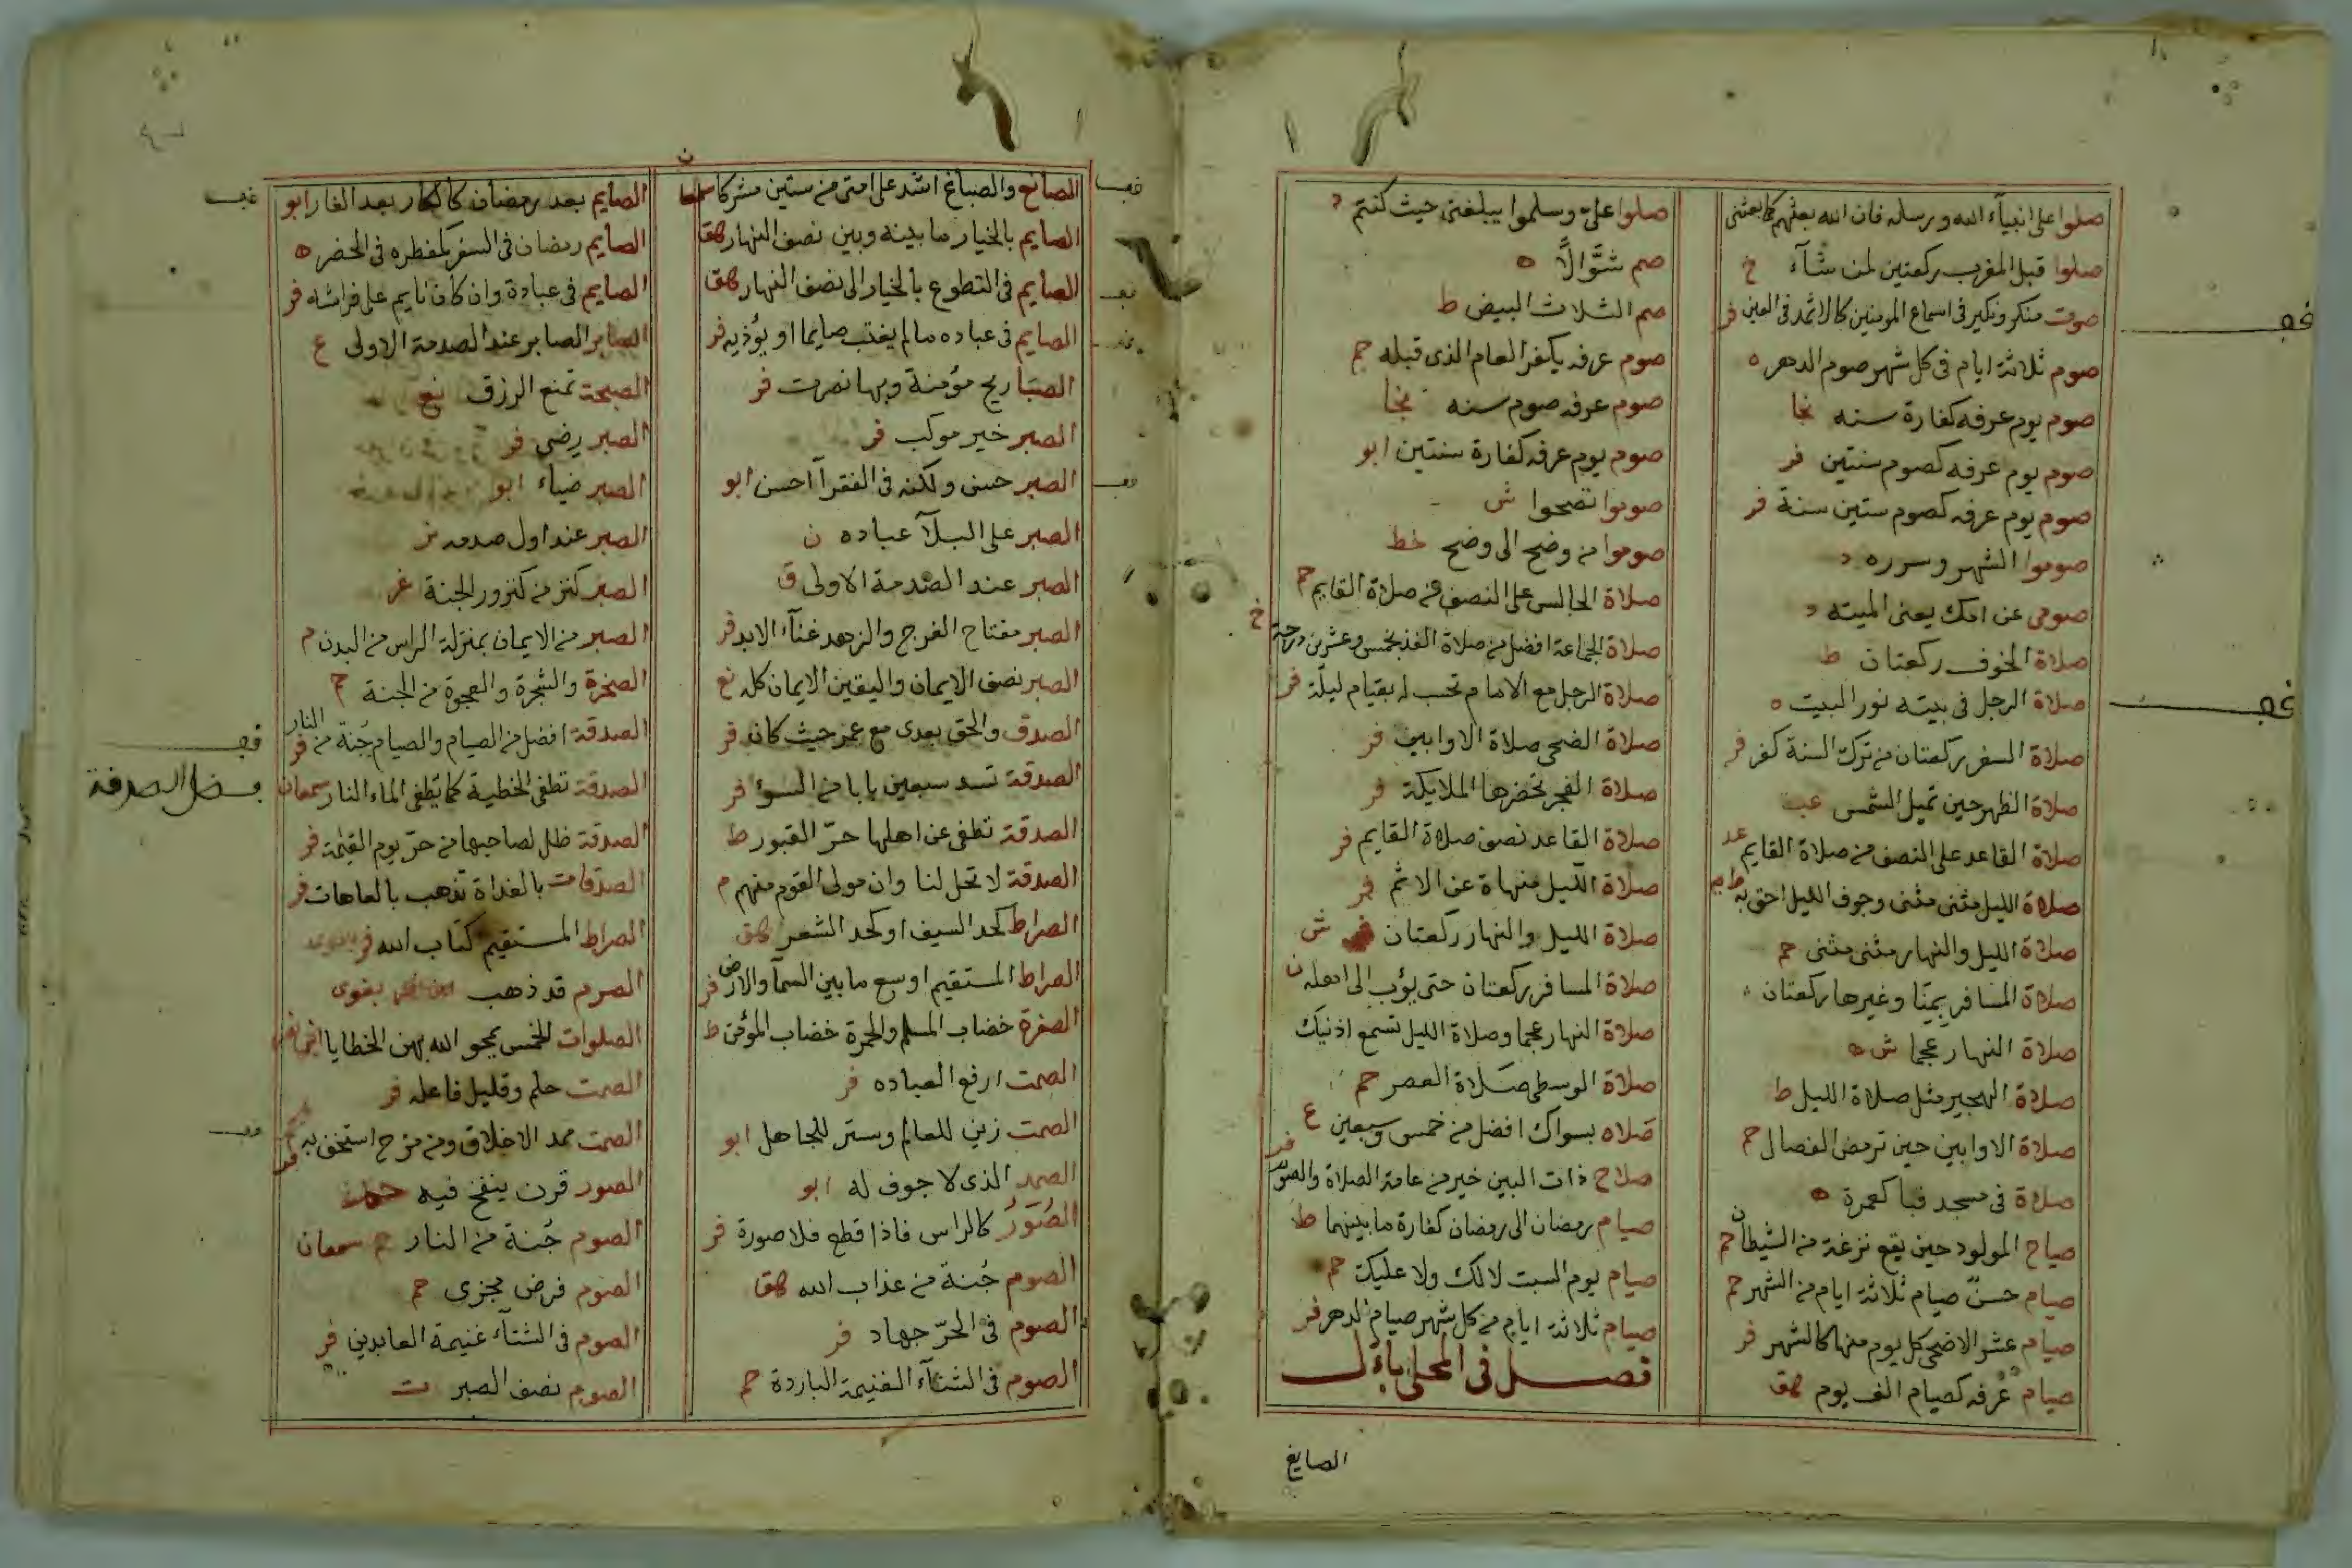 صلوا على انبيآء الله ورسله فان الله بعثهم كما بعثنى
صلوا قبل المغرب ركعتين لمن شآء خ
صوت منكر ونكير فى اسماع المومنين كالاثمد فى العين فر
صوم ثلاثة ايام فى كل شهر صوم الدهر ه
صوم يوم عرفه كفارة سنه نجا
صوم يوم عرفه كصوم سنتين فر
صوم يوم عرفه كصوم ستين سنة فر
صوموا الشهر وسرره د
صومى عن امك يعنى الميته د
صلاة الخوف ركعتان ط
صلاة الرجل فى بيته نور البيت ه
صلاة السفر ركعتان من ترك السنة كفر فر
صلاة الظهر حين تميل الشمس عب
صلاة القاعد على النصف من صلاة القايم عد
صلاة الليل مثنى مثنى وجوف الليل احق به
صلاة الليل والنهار مثنى مثنى حم
صلاة المسافر بمنا وغيرها ركعتان
صلاة النهار عجما ش ه
صلاة الهجير مثل صلاة الليل ط
صلاة الاوابين حين ترمض الفصال حم
صلاة فى مسجد قبا كعمرة ه
صياح المولود حين يقع نزغة من الشيطان حم
صيام حسن صيام ثلاثة ايام من الشهر حم
صيام عشر الاضحى كل يوم منها كالشهر فر
صيام عرفه كصيام الف يوم هق
صلوا على وسلموا يبلغنى حيث كنتم د
صم شوالا ه
صم الثلاث البيض ط
صوم عرفه يكفر العام الذى قبله حم
صوم عرفه صوم سنه نجا
صوم يوم عرفه كفارة سنتين ابو
صوموا تصحوا ش
صوموا من وضح الى وضح خط
صلاة الجالس على النصف من صلاة القايم حم
صلاة الجماعة افضل من صلاة الفذ بخمس وعشرين درجة خ
صلاة الرجل مع الامام تحسب له بقيام ليلة فر
صلاة الضحى صلاة الاوابين فر
صلاة الفجر تحضرها الملايكة فر
صلاة القاعد نصف صلاة القايم فر
صلاة الليل منهاة عن الاثم فر
صلاة الليل والنهار ركعتان ش
صلاة المسافر ركعتان حتى يؤب الى اهله ن
صلاة النهار عجما وصلاة الليل تسمع اذنيك
صلاة الوسطى صلاة العصر حم
صلاه بسواك افضل من خمس وسبعين ع
صلاح ذات البين خير من عامة الصلاة والصوم فر
صيام رمضان الى رمضان كفارة ما بينهما ط
صيام يوم السبت لا لك ولا عليك حم
صيام ثلاثة ايام من كل شهر صيام الدهر فر
فصل فى المحلى بال
الصايغ
الصايغ والصباغ اشد على امتى من ستين مشركا
الصايم بالخيار ما بينه وبين نصف النهار هق
الصايم فى التطوع بالخيار الى نصف النهار هق
الصايم فى عباده مالم يغتب صايما او يؤذيه فر
الصبا ريح مؤمنة وبها نصرت فر
الصبر خير موكب فر
الصبر حسن ولكنه فى الفقرآ احسن ابو
الصبر على البلآ عباده ن
الصبر عند الصدمة الاولى ق
الصبر مفتاح الفرج والزهد غنآء الابد فر
الصبر نصف الايمان واليقين الايمان كله نع
الصدق والحق بعدى مع عمر حيث كان فر
الصدقة تسد سبعين بابا من السوء فر
الصدقة تطفى عن اهلها حر القبور ط
الصدقة لا تحل لنا وان مولى القوم منهم م
الصراط كحد السيف او كحد الشعر هق
الصراط المستقيم اوسع ما بين السمآ والارض فر
الصفرة خضاب المسلم والحمرة خضاب المؤمن ط
الصمت ارفع العباده فر
الصمت زين للعالم وستر للجاهل ابو
الصمد الذى لا جوف له ابو
الصور كالراس فاذا قطع فلا صورة فر
الصوم جنة من عذاب الله هق
الصوم فى الحر جهاد فر
الصوم فى الشتآء الغنيمة الباردة حم
الصايم بعد رمضان كالكار بعد الفار ابو
الصايم رمضان فى السفر كمفطره فى الحضر ه
الصايم فى عبادة وان كان نايم على فراشه فر
الصابر الصابر عند الصدمة الاولى ع
الصبحة تمنع الرزق نع
الصبر رضى فر
الصبر ضياء ابو
الصبر عند اول صدمه
الصبر كنز من كنوز الجنة غر
الصبر من الايمان بمنزلة الراس من البدن م
الصخرة والشجرة والعجوة من الجنة حم
الصدقة افضل من الصيام والصيام جنة من النار فر
الصدقة تطفى الخطية كما يطفى الماء النار سمعان
فضل الصدقة
الصدقة ظل لصاحبها من حر يوم القيمة فر
الصدقات بالغداة تذهب بالعاهات فر
الصراط المستقيم كتاب الله فر
الصرم قد ذهب بغوى
الصلوات الخمس يمحو الله بهن الخطايا
الصمت حلم وقليل فاعله فر
الصمت سيد الاخلاق ومن مزح استخف به فر
الصور قرن ينفخ فيه
الصوم جنة من النار سمعان
الصوم فرض مجزى حم
الصوم فى الشتآء غنيمة العابدين فر
الصوم نصف الصبر ت